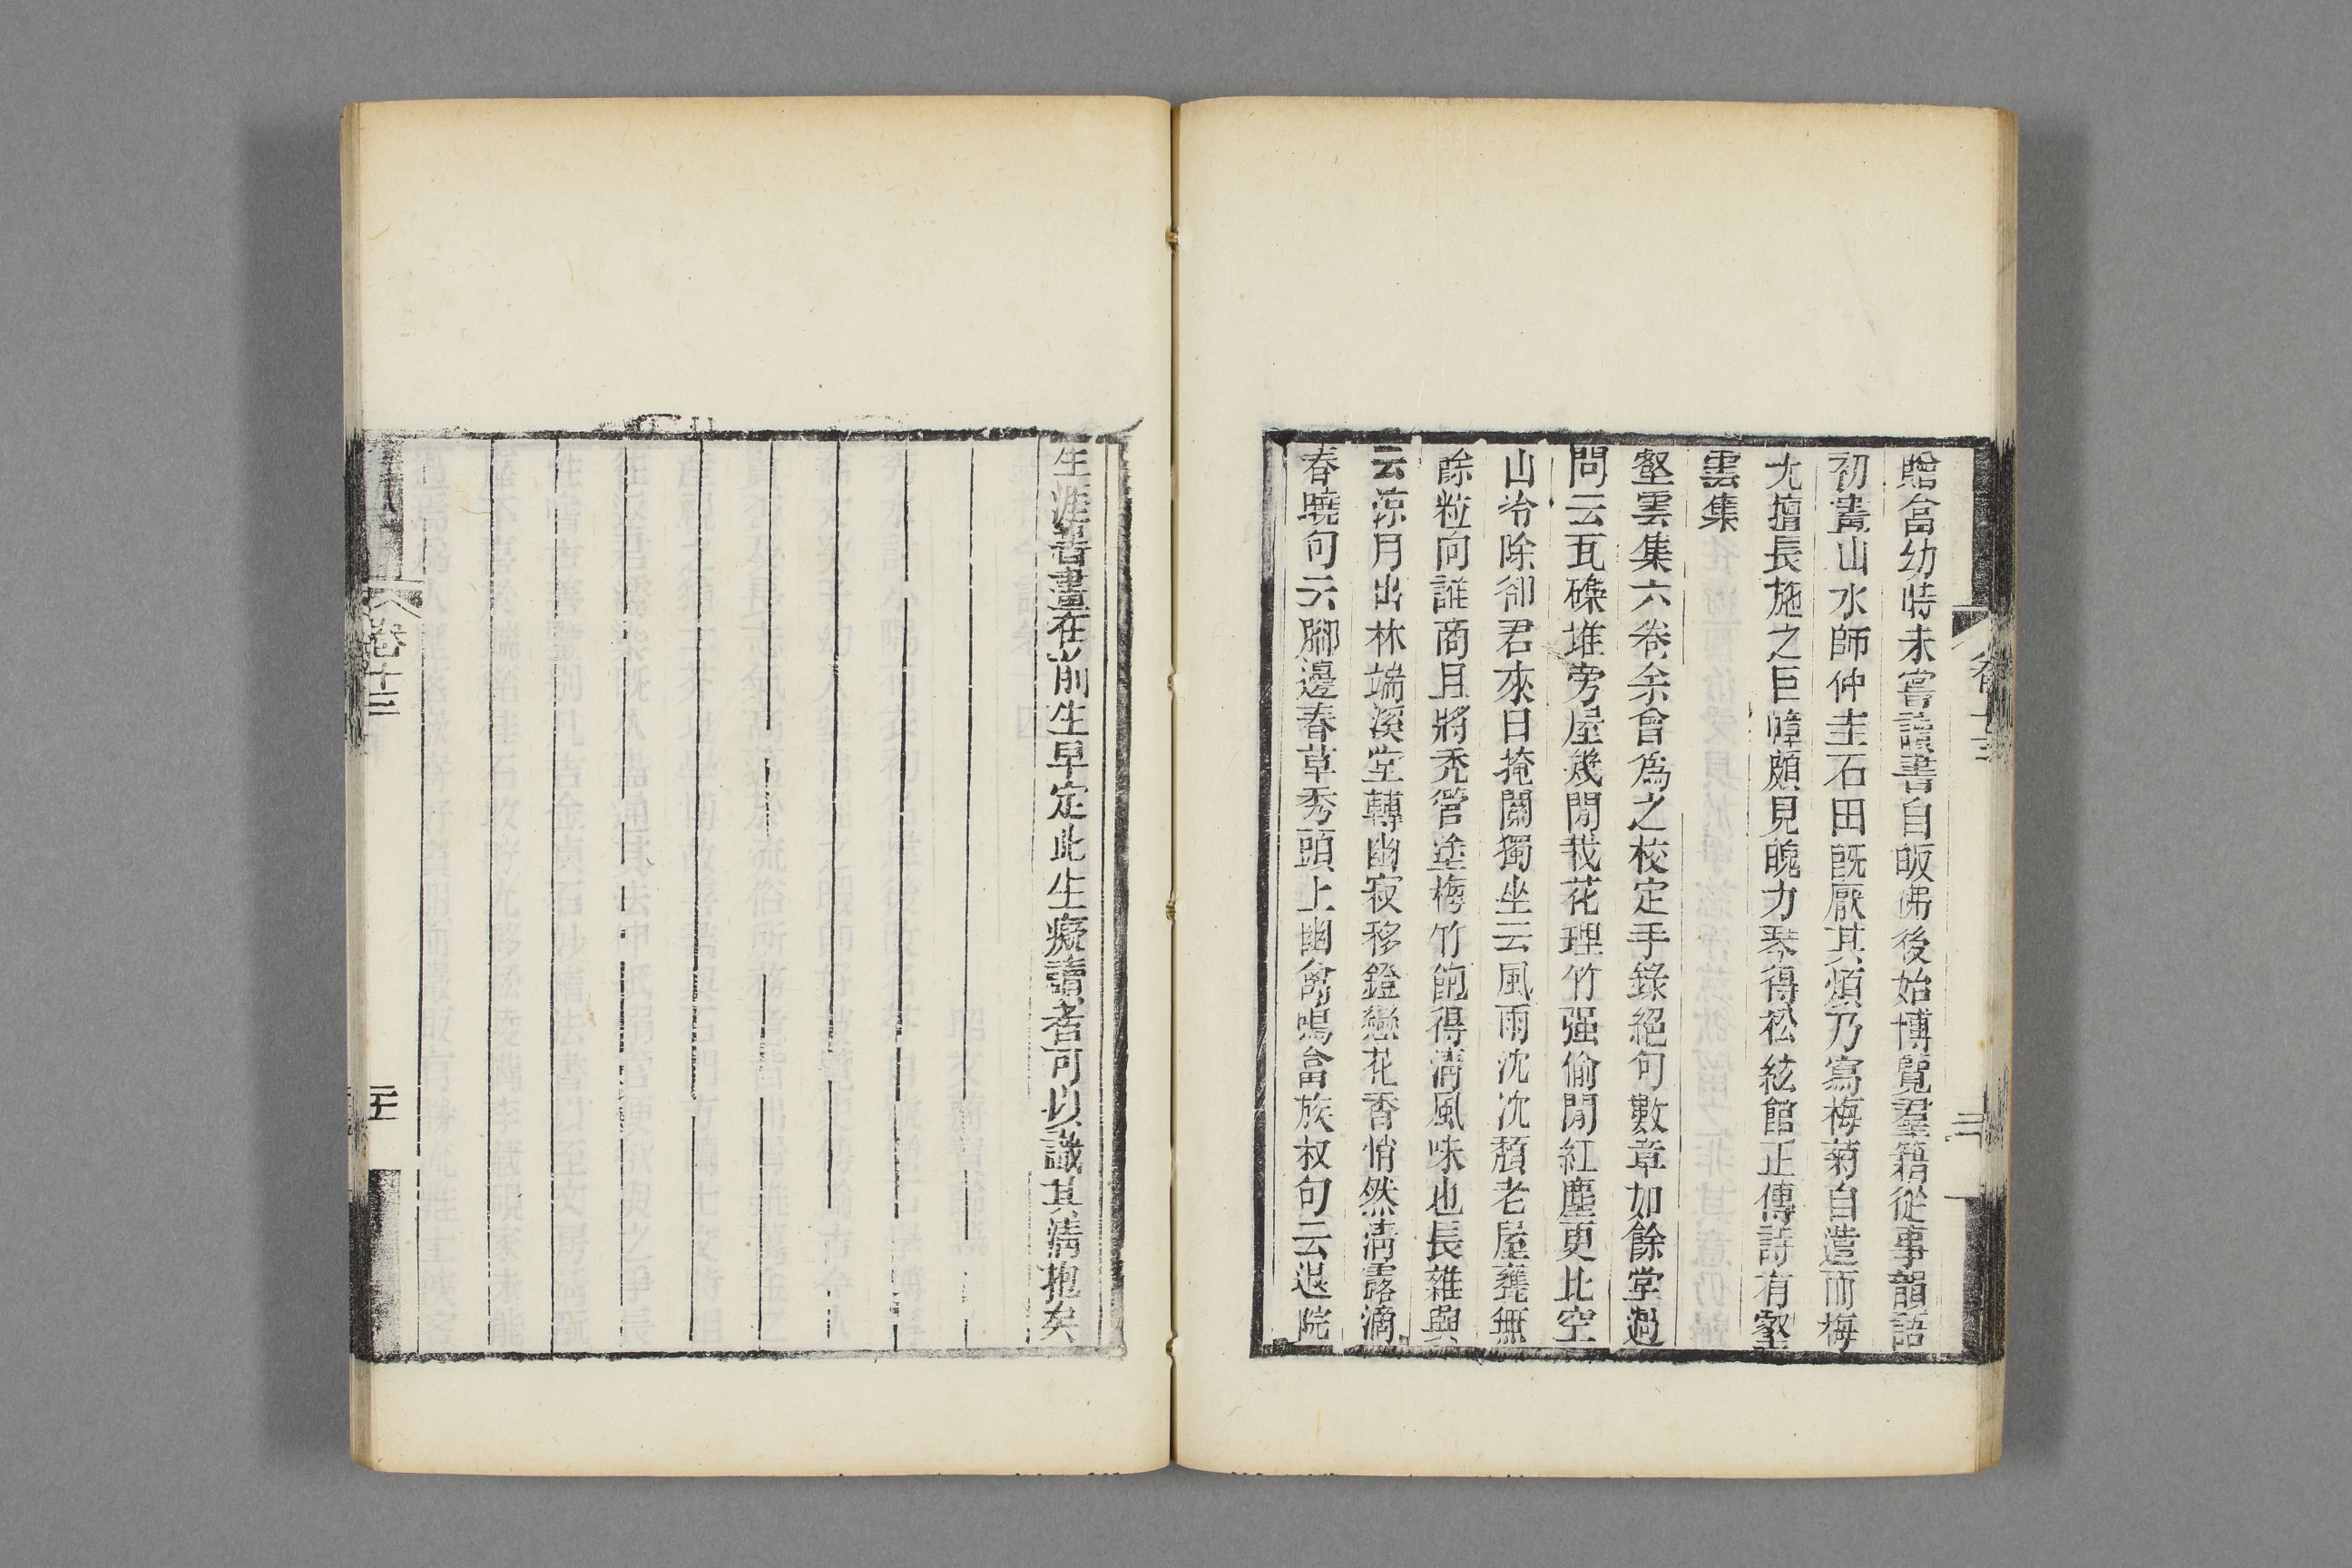 贈盦幼時未嘗讀書自皈佛後始博覽羣籍從事韻語
初畫山水師仲圭石田旣厭其煩乃寫梅菊自遣而梅
尤擅長施之巨幛頗見魄力琴得松絃館正傳詩有壑
雲集
壑雲集六卷余曾爲之校定手錄絕句數章如餘堂過
問云瓦礫堆旁屋幾閒栽花理竹强偷閒紅塵更比空
山冷除卻君來日掩關獨坐云風雨沈沈頹老屋甕無
餘粒向誰商且將禿管塗梅竹飽得淸風味也長雜與
云涼月出林端溪堂轉幽寂移鐙戀花香悄然淸露滴
春曉句云腳邊春草秀頭上幽禽鳴畣族叔句云退院
卷十三
生涯書畫在前生早定此生癡讀者可以識其淸抱矣
卷十三